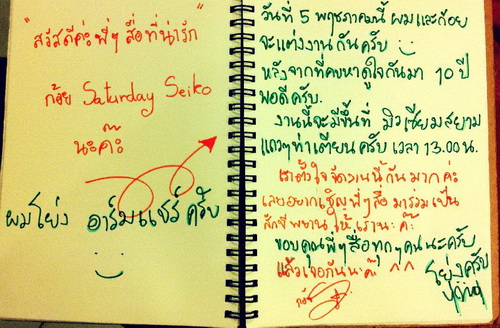 "สวัสดีค่ะพี่ๆ สื่อที่น่ารัก"
ก้อย Saturday Seiko
นะค๊ะ
ผมโย่ง อาร์มแชร์ ครับ
วันที่ 5 พฤษภาคมนี้ ผมและก้อย
จะแต่งงานกันครับ
หลังจากที่คบหาดูใจกันมา 10 ปี
พอดีครับ.
งานนี้จะมีขึ้นที่ มิวเซียมสยาม
แถวๆท่าเตียนครับ เวลา 13.00 น.
เราตั้งใจจัดงานนี้กันมากค่ะ
เลยอยากเชิญพี่ๆสื่อ มาร่วมเป็น
สักขีพยานให้เรานะค๊ะ
ขอบคุณพี่ๆสื่อทุกๆคนนะครับ
แล้วเจอกันนะค๊ะ ^^ โย่งครับ
ก้อย